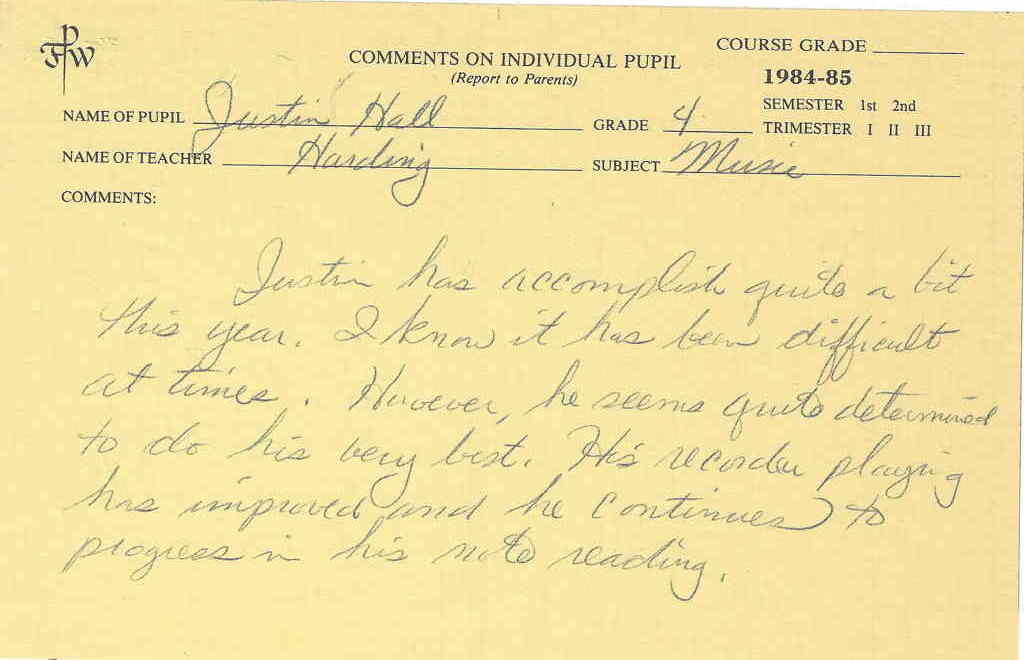 FPW
COURSE GRADE
COMMENTS ON INDIVIDUAL PUPIL
(Report to Parents)
1984-85
SEMESTER 1st 2nd
NAME OF PUPIL Justin Hall GRADE 4 TRIMESTER I II III
NAME OF TEACHER Harding SUBJECT Music
COMMENTS:
Justin has accomplish quite a bit
this year. I know it has been difficult
at times. However, he seems quite determined
to do his very best. His recorder playing
has improved and he continues to
progress in his note reading.